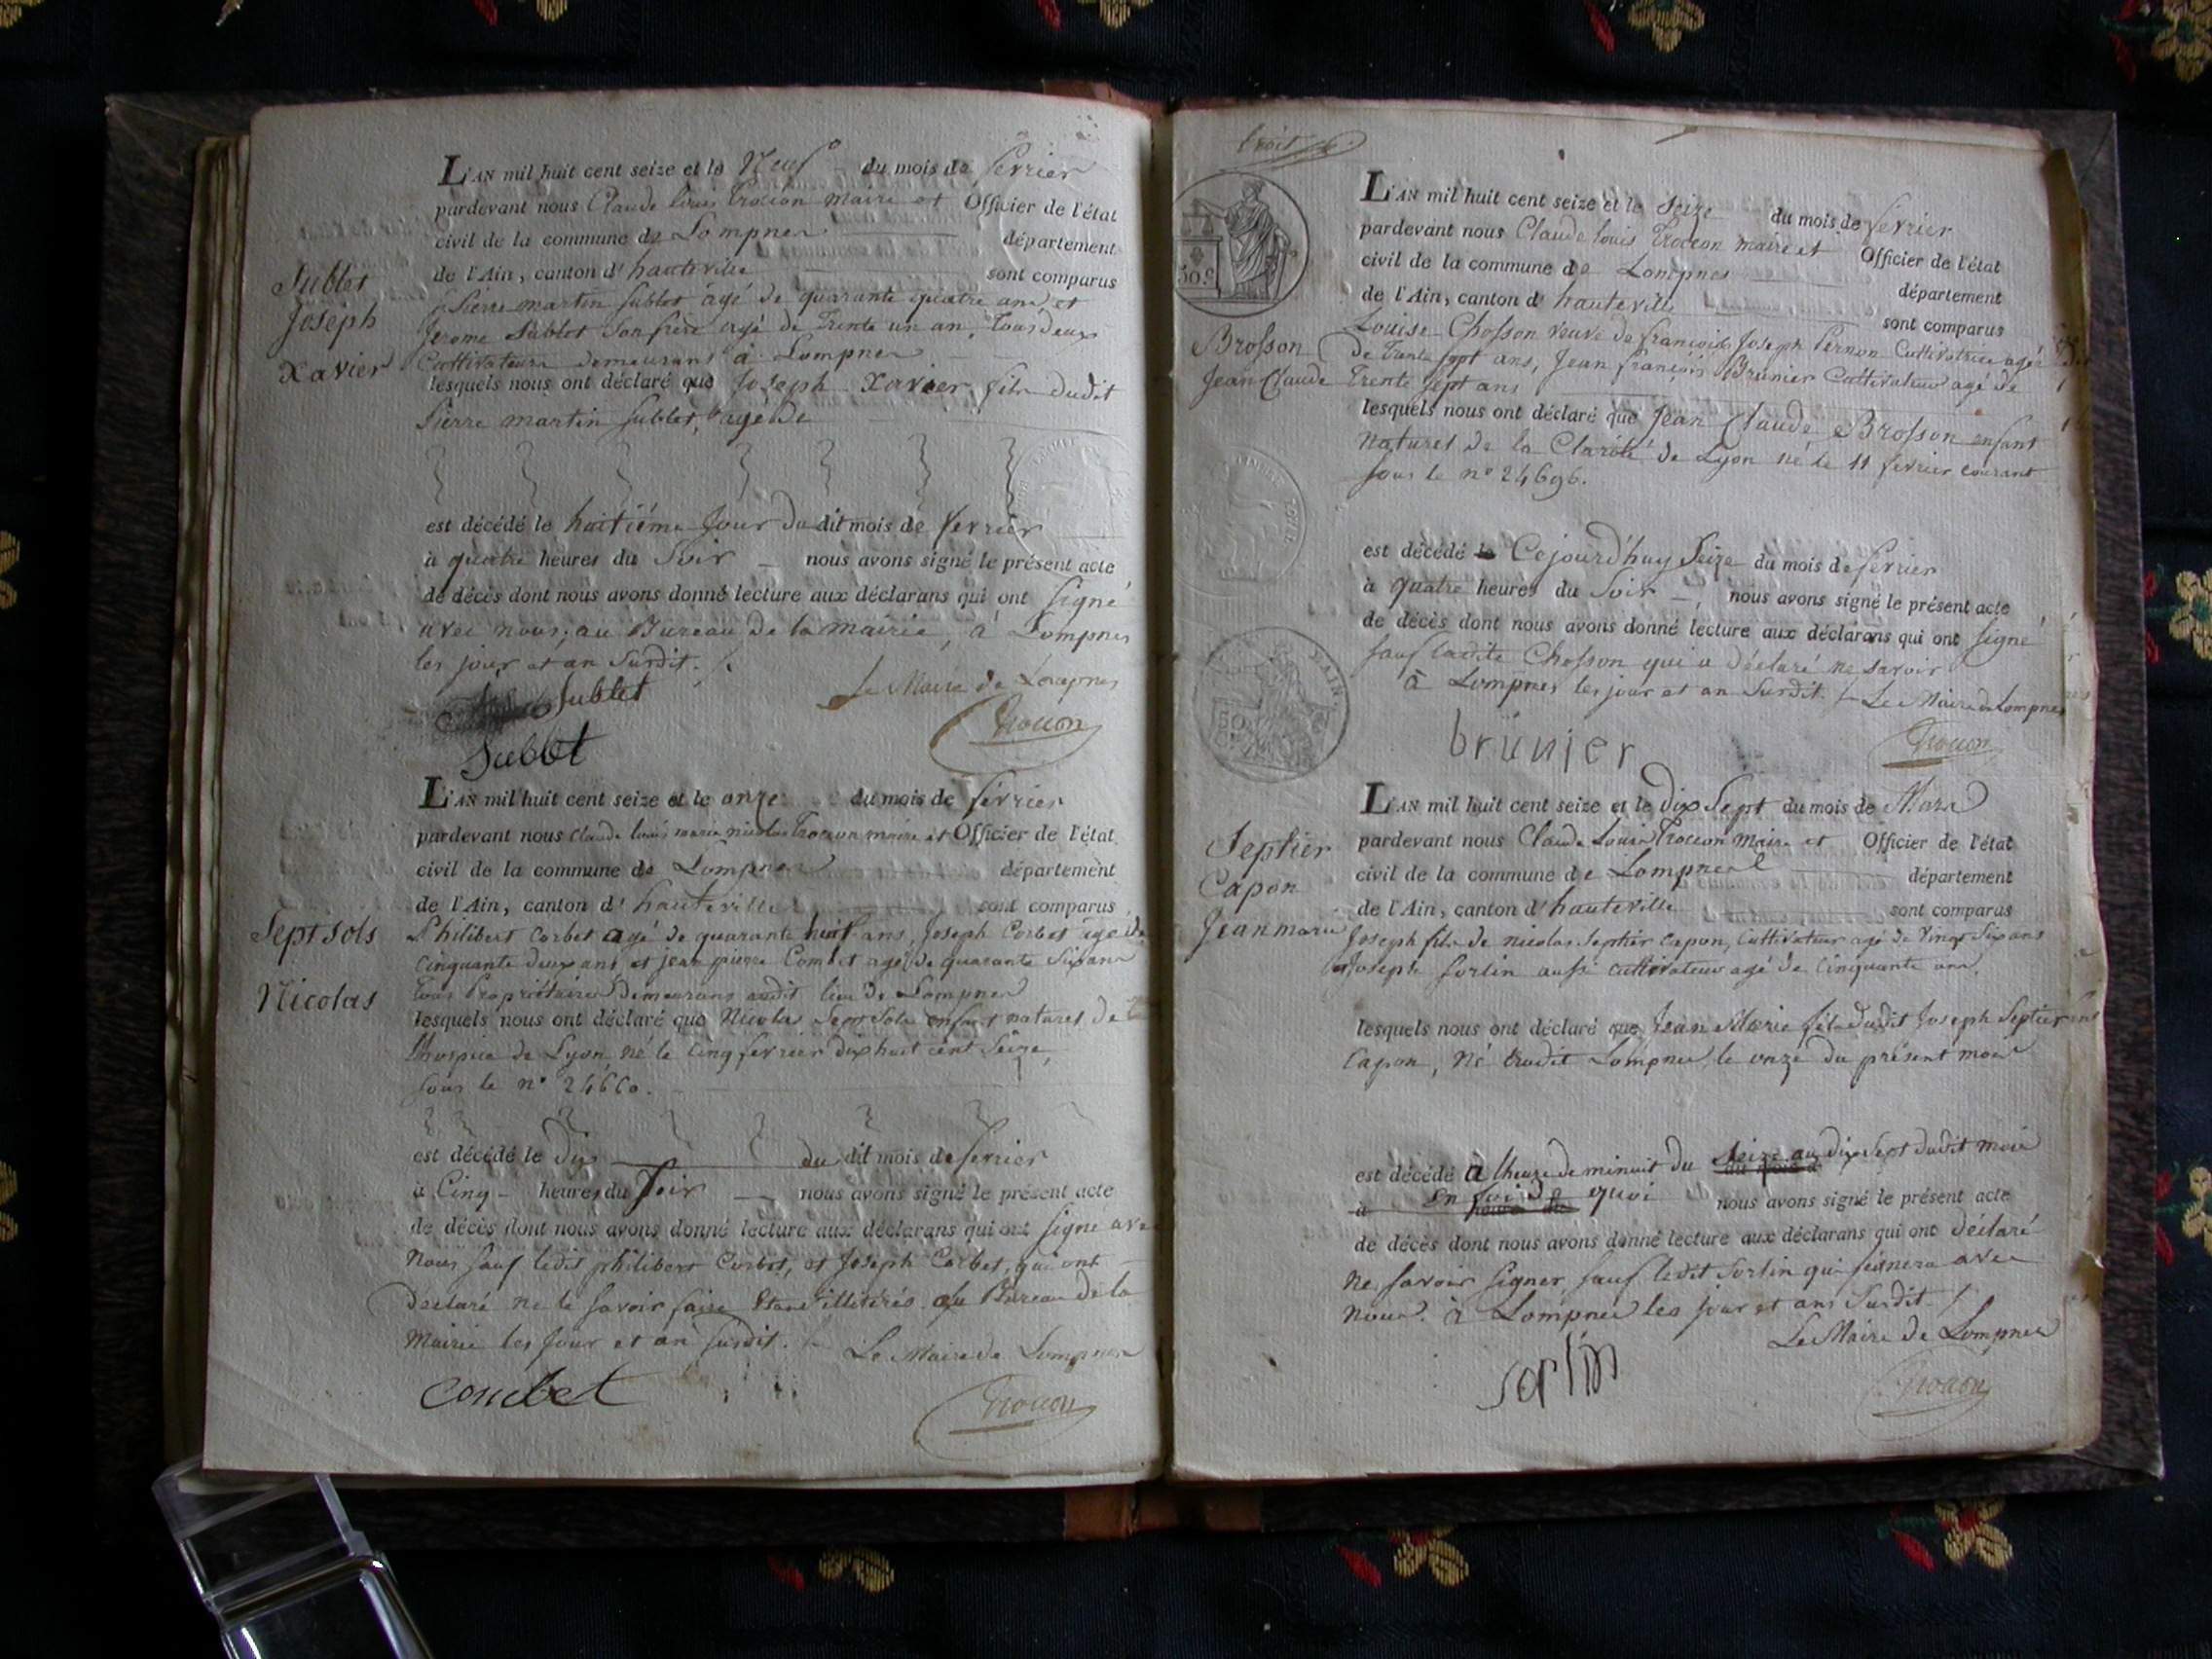 L'AN mil huit cent seize et le Neuf du mois de fevrier
pardevant nous Claude Louis Trocon maire et Officier de l'état
civil de la commune de Lompnes département
de l'Ain, canton d'hauteville sont comparus
Sublet
Joseph
Xavier
Pierre martin Sublet agé de quarante quatre ans et
Jerome Sublet Son frere agé de Trente un an, Tous deux
Cultivateurs demeurans à Lompnes
lesquels nous ont déclaré que Joseph Xavier fils dudit
Pierre martin Sublet, agé de
est décédé le huitiéme Jour du dit mois de fevrier
à quatre heures du Soir nous avons signé le présent acte
de décès dont nous avons donné lecture aux déclarans qui ont Signé
avec nous, au Bureau de la mairie, à Lompnes
les jour et an Susdit.
Sublet
Le Maire de Lompnes
Trocon
Sublet
L'AN mil huit cent seize et le onze du mois de février
pardevant nous Claude Louis marie nicolas Trocon maire et Officier de l'état
civil de la commune de Lompnes département
de l'Ain, canton d'hauteville sont comparus
Sept Sols
Nicolas
Philibert Corbet agé de quarante huit ans, Joseph Corbet agé de
Cinquante deux ans et jean pierre Combet agé de quarante Six ans
Tous Propriétaires demeurans audit lieu de Lompnes
lesquels nous ont déclaré que Nicolas Sept Sols enfant naturel de
lhospice de Lyon, né le Cinq fevrier dix huit cent Seize,
Sous le n° 24660.
est décédé le Dix du dit mois de fevrier
à Cinq heures du Soir nous avons signé le présent acte
de décès dont nous avons donné lecture aux déclarans qui ont Signé avec
Nous Sauf ledit philibert Corbet, et Joseph Corbet, qui ont
Déclaré ne le Savoir faire Etant illitérés. au Bureau de la
Mairie les Jour et an Susdit.
Le Maire de Lompnes
Combet
Trocon
L'AN mil huit cent seize et le Seize du mois de fevrier
pardevant nous Claude Louis Trocon maire et Officier de l'état
civil de la commune de Lompnes département
de l'Ain, canton d'hauteville sont comparus
50 c.
Brosson
Jean Claude
Louise Chosson veuve de francois Joseph Pernon Cultivatrice agée
de Trente Sept ans, Jean françois Brunier Cultivateur agé de
Trente Sept ans
lesquels nous ont déclaré que Jean Claude Brosson enfant
naturel de la Charité de Lyon né le 11 fevrier courant
Sous le n° 24696.
est décédé le Cejourd'huy Seize du mois de fevrier
à quatre heures du Soir nous avons signé le présent acte
de décès dont nous avons donné lecture aux déclarans qui ont Signé
Sauf ladite Chosson qui a déclaré ne savoir
à Lompnes les jour et an Susdit. Le Maire de Lompnes
brunier
Trocon
L'AN mil huit cent seize et le Dix Sept du mois de Mars
pardevant nous Claude Louis Trocon Maire et Officier de l'état
civil de la commune de Lompnes département
de l'Ain, canton d'hauteville sont comparus
Septier
Capon
Jean marie
Joseph fils de nicolas Septier Capon, Cultivateur agé de Vingt Six ans
et Joseph Sorlin aussi cultivateur agé de Cinquante ans.
lesquels nous ont déclaré que Jean Marie fils dudit Joseph Septier
Capon, Né audit Lompnes le onze du présent mois
est décédé à lheure de minuit du Seize au dix Sept dudit mois
à En foi de quoi nous avons signé le présent acte
de décès dont nous avons donné lecture aux déclarans qui ont déclaré
ne Savoir Signer, Sauf ledit Sorlin qui Signera avec
Nous. à Lompnes les jour et ans Susdit.
Le Maire de Lompnes
sorlin
Trocon